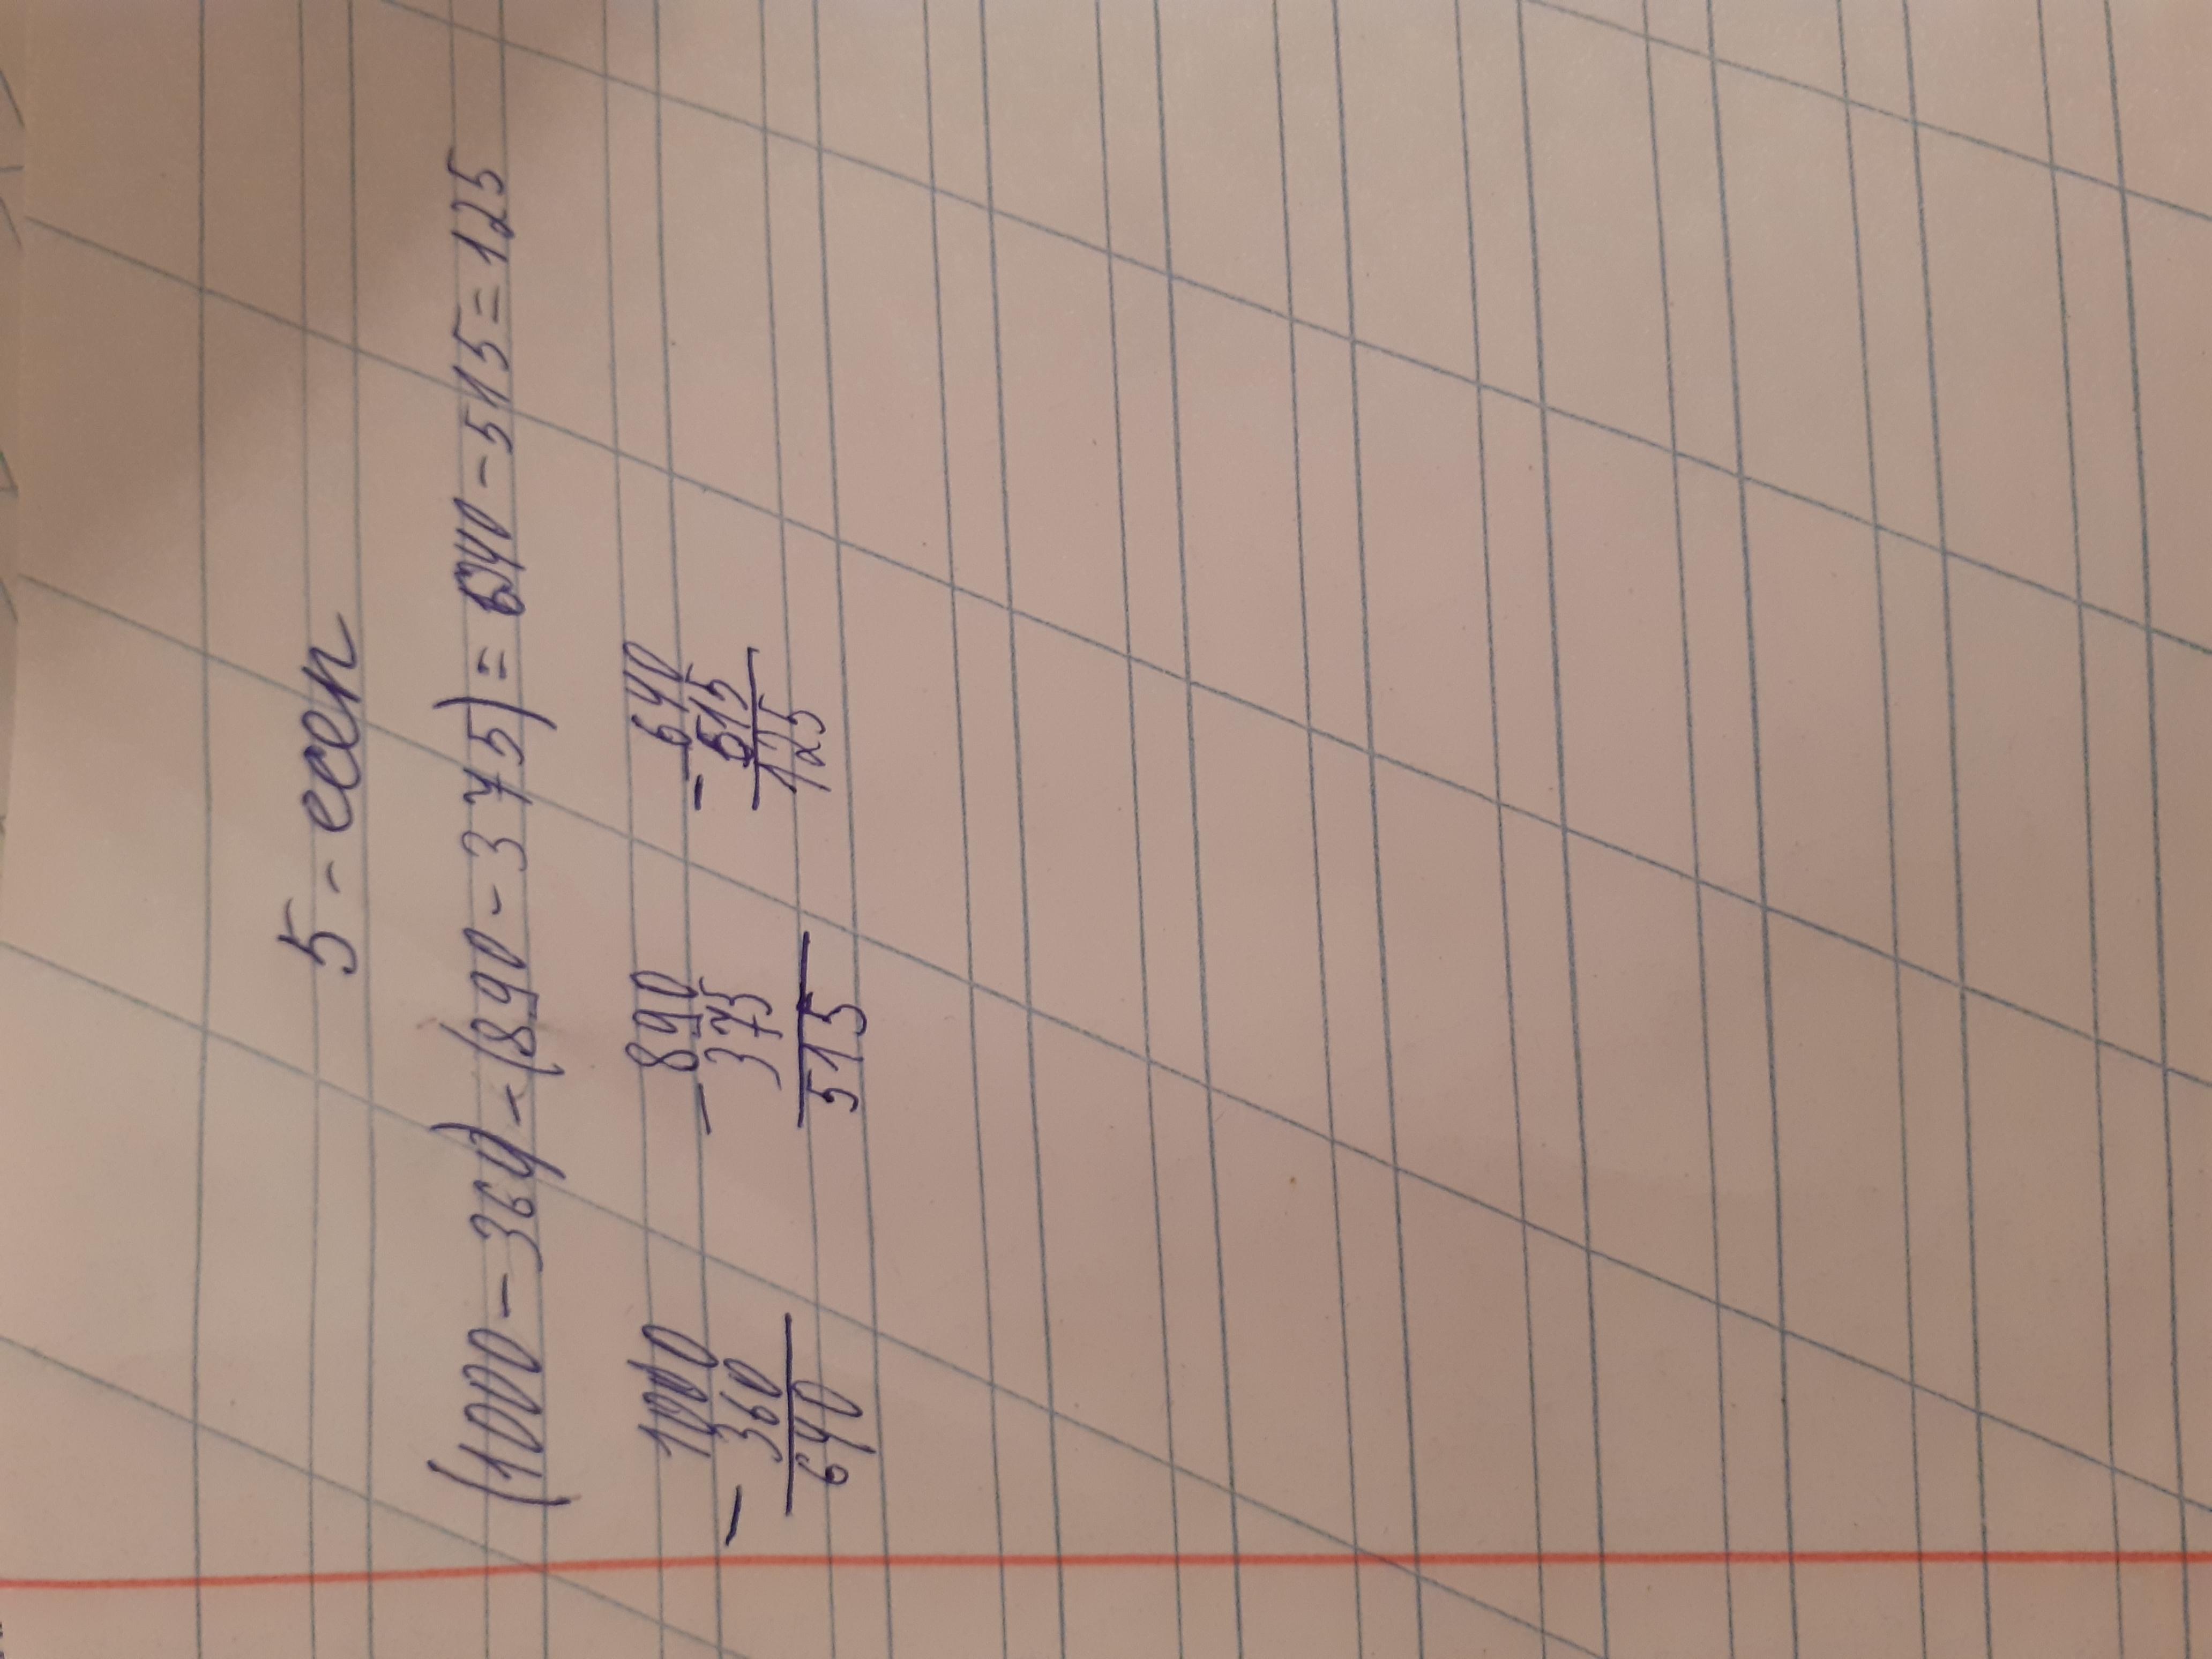 5 - есеп
(1000 - 360) - (890 - 375) = 640 - 515 = 125
- 1000 - 890 - 640
360 375 515
640 515 125